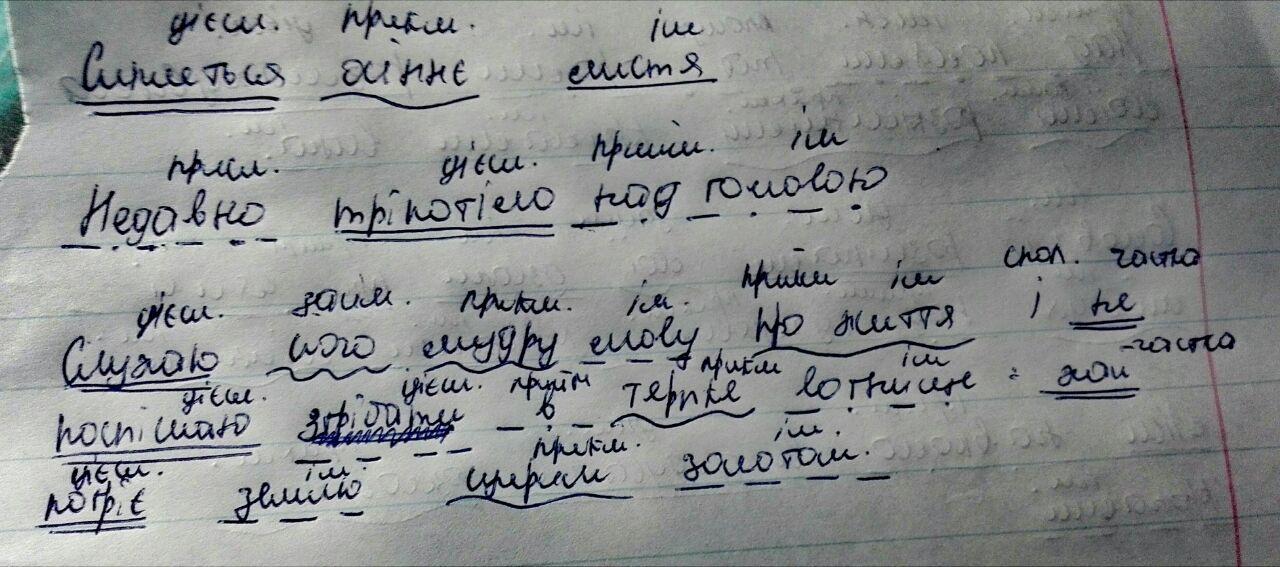 дієсл. прикм. ім
Сиплеться осіннє листя
присл. дієсл. прийм. ім
Недавно тріпотіло над головою
дієсл. займ. прикм. ім. прийм ім спол. частка
Слухаю його мудру мову про життя і не
дієсл. дієсл. прийм прикм ім частка
поспішаю згрібати в терпке вогнище : хай
дієсл. ім. прикм. ім.
погріє землю щирим золотом.